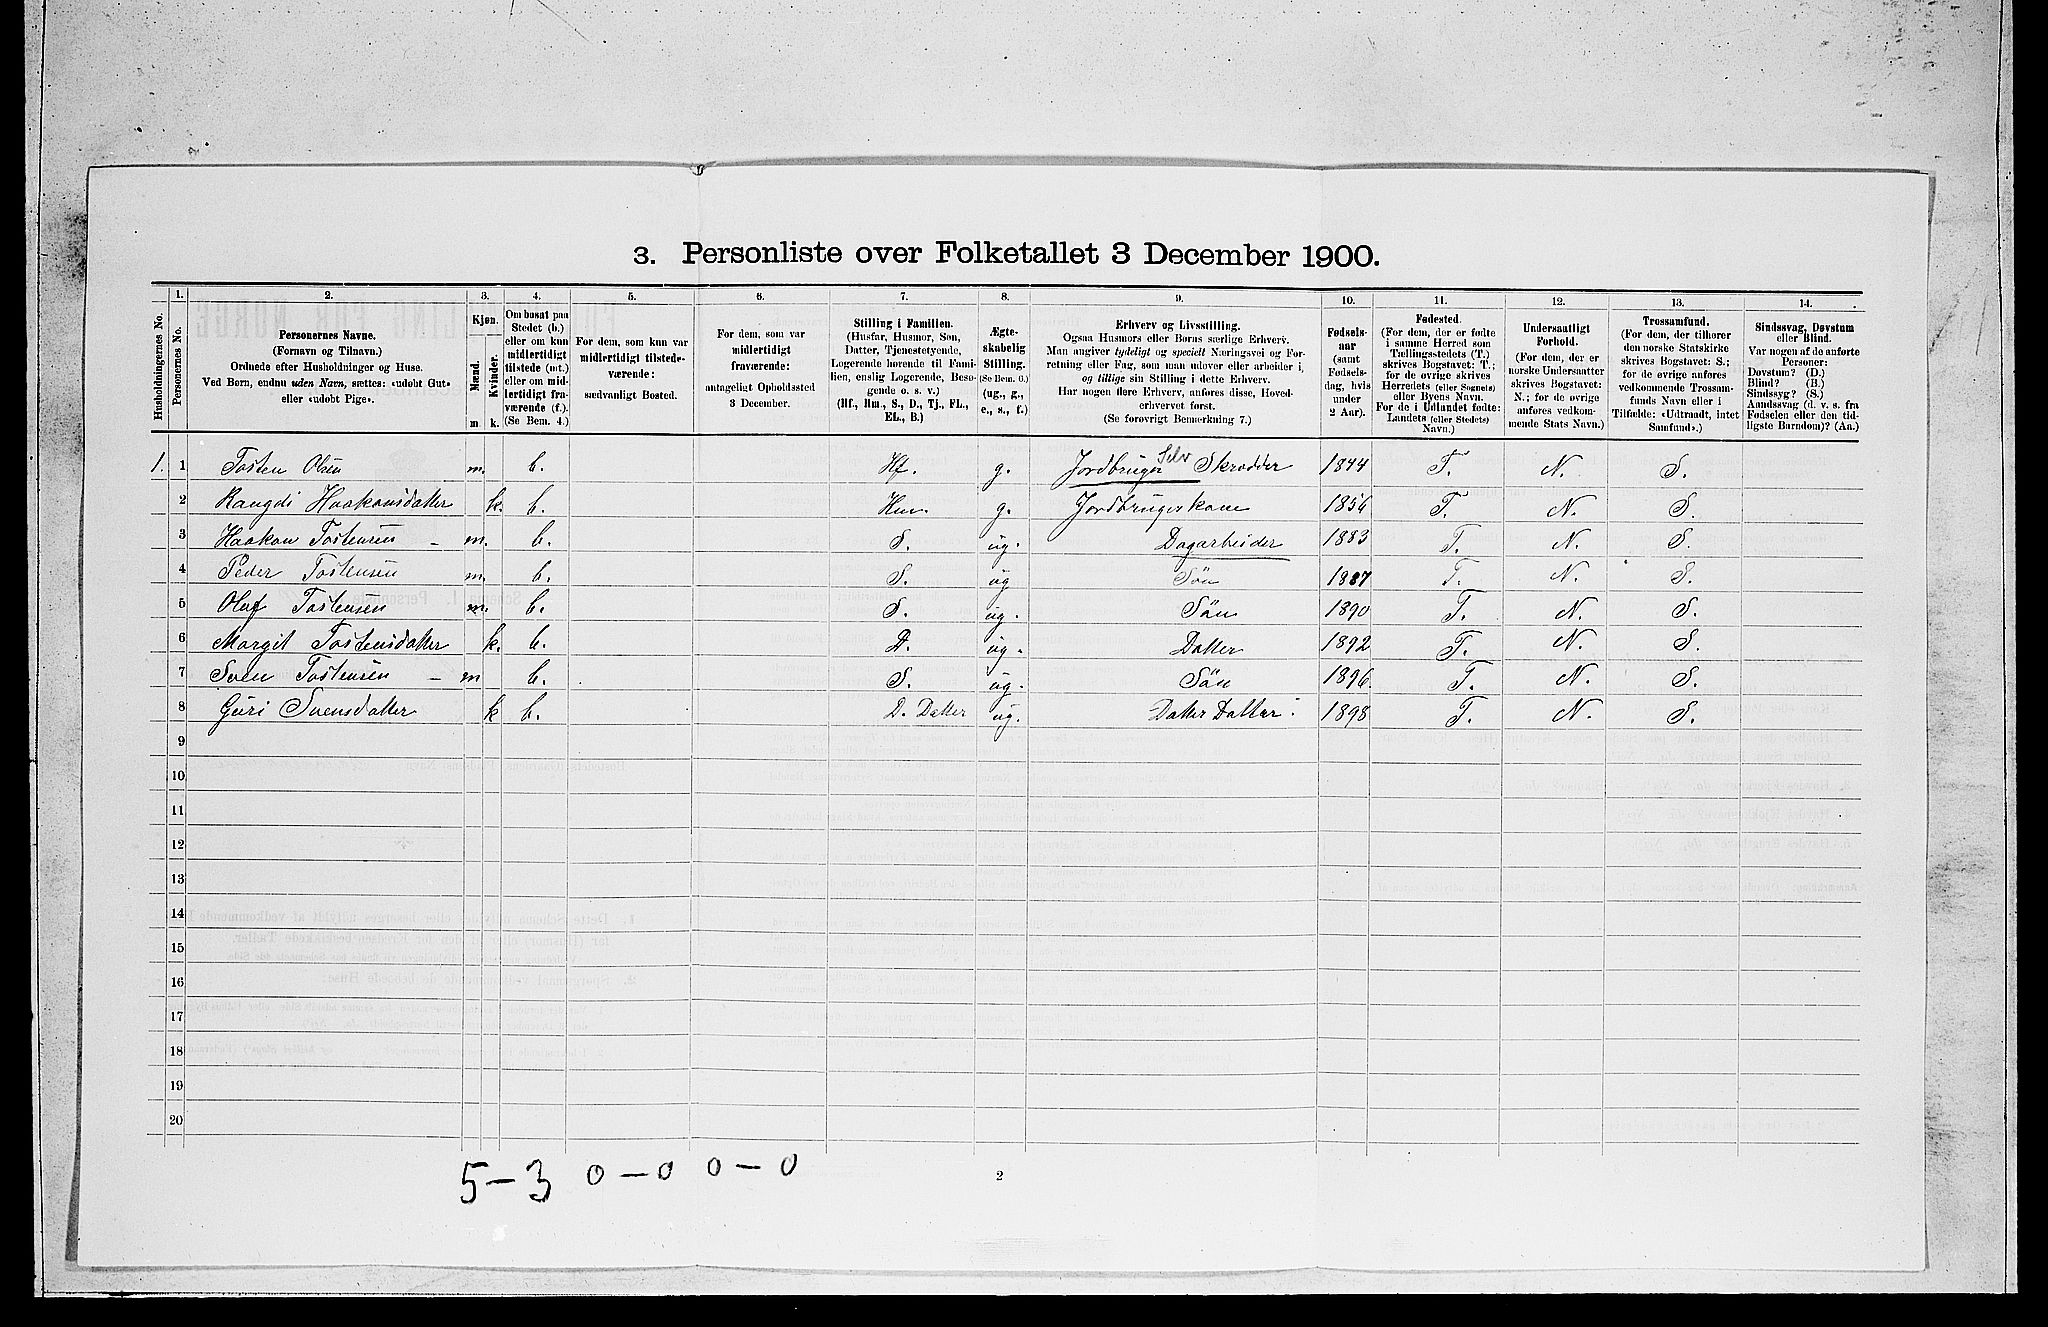 3. Personliste over Folketallet 3 December 1900.
Husholdningernes No.
1.
Personernes No.
2.
Personernes Navne.
(Fornavn og Tilnavn.)
Ordnede efter Husholdninger og Huse.
Ved Børn, endnu uden Navn, sættes: «udøbt Gut»
eller «udøbt Pige».
3.
Kjøn.
Mænd.
m.
Kvinder.
k.
4.
Om bosat paa
Stedet (b.)
eller om kun
midlertidigt
tilstede (mt.)
eller om mid-
lertidigt fra-
værende (f.).
(Se Bem. 4.)
5.
For dem, som kun var
midlertidigt tilstede-
værende:
sædvanligt Bosted.
6.
For dem, som var
midlertidigt
fraværende:
antageligt Opholdssted
3 December.
7.
Stilling i Familien.
(Husfar, Husmor, Søn,
Datter, Tjenestetyende,
Logerende hørende til Fami-
lien, enslig Logerende, Besø-
gende o. s. v.)
(Hf., Hm., S., D., Tj., FL.,
EL., B.)
8.
Ægte-
skabelig
Stilling.
(Se Bem. 6.)
(ug., g.,
e., s., f.)
9.
Erhverv og Livsstilling.
Ogsaa Husmors eller Børns særlige Erhverv.
Man angiver tydeligt og specielt Næringsvei og For-
retning eller Fag, som man udøver eller arbeider i,
og tillige sin Stilling i dette Erhverv.
Har nogen flere Erhverv, anføres disse, Hoved-
erhvervet først.
(Se forøvrigt Bemerkning 7.)
10.
Fødsels-
aar
(samt
Fødsels-
dag, hvis
under
2 Aar).
11.
Fødested.
(For dem, der er fødte
i samme Herred som
Tællingsstedets (T.)
skrives Bogstavet: T.;
for de øvrige skrives
Herredets (eller Sognets)
eller Byens Navn.
For de i Udlandet fødte:
Landets (eller Stedets)
Navn.)
12.
Undersaatligt
Forhold.
(For dem, der er
norske Undersaatter
skrives Bogstavet:
N.; for de øvrige
anføres vedkom-
mende Stats Navn.)
13.
Trossamfund.
(For dem, der tilhører
den norske Statskirke
skrives Bogstavet: S.;
for de øvrige anføres
vedkommende Trossam-
funds Navn eller i
Tilfælde: «Udtraadt, intet
Samfund».)
14.
Sindssvag, Døvstum
eller Blind.
Var nogen af de anførte
Personer:
Døvstum? (D.)
Blind? (B.)
Sindssyg? (S.)
Aandssvag (d. v. s. fra
Fødselen eller den tid-
ligste Barndom)? (Aa.)
1. 1 Tosten Olsen m. b. Hf. g. Jordbruger Selv Skrædder 1844 T. N. S.
2 Rangdi Haakonsdatter k. b. Hm. g. Jordbrugerkone 1856 T. N. S.
3 Haakon Tostensen – m. b. S. ug. Dagarbeider 1883 T. N. S.
4 Peder Tostensen m. b. S. ug Søn 1887 T. N. S.
5 Olaf Tostensen m. b. S. ug. Søn 1890 T. N. S.
6 Margit Tostensdatter k. b. D. ug. Datter 1892 T. N. S.
7 Sven Tostensen – m b. S. ug. Søn 1896. T. N. S.
8 Guri Svensdatter k b. D. Datter ug. Datter Datter. 1898 T. N. S.
9
10
11
12
13
14
15
16
17
18
19
20
5–3 0–0 0–0
2